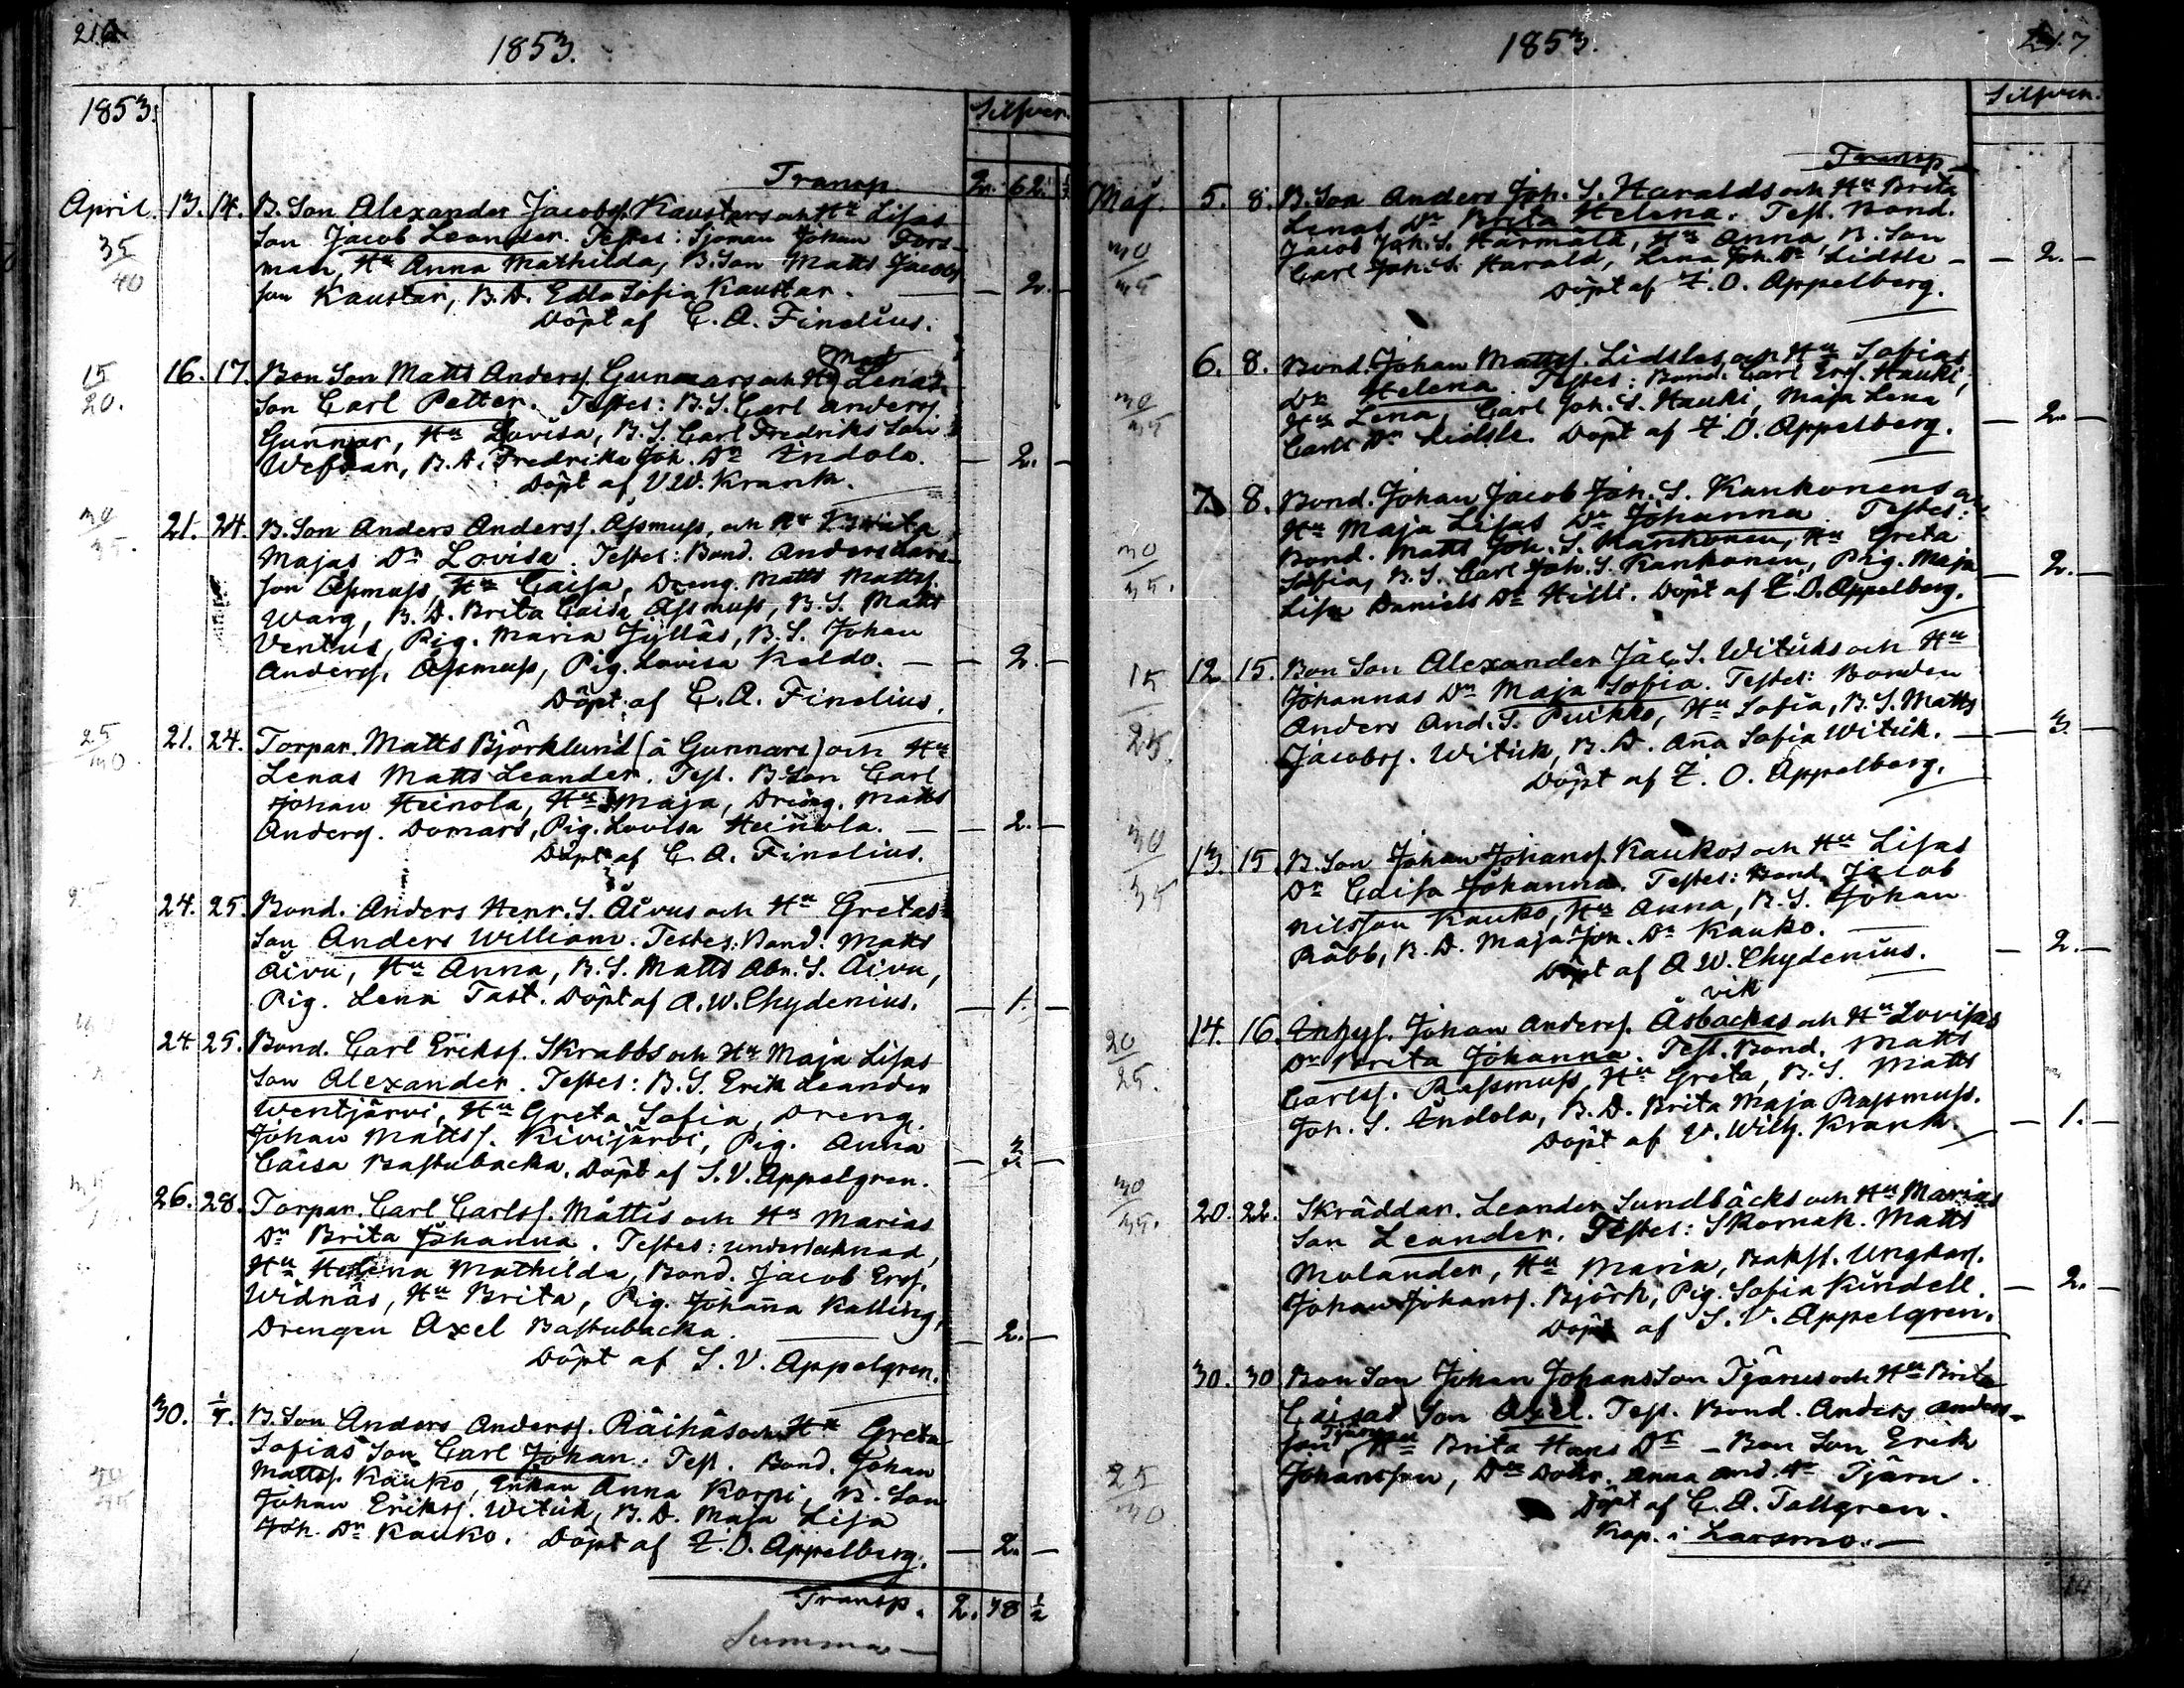 216
1853.
1853.
Silfver.
Transp. 2. 62. ½
April. 13. 14. B. Son Alexander Jacobs. Kaustars och Hu Lisas
35/40 Son Jacob Leander. Testes: Sjöman Johan Fors-
man, Hu Anna Mathilda, B. Son Matts Jacobs
son Kaustar, B. D. Edla Sofia Kaustar. — 2. —
Döpt af C. A. Finelius.
15/20. 16. 17. Bon Son Matts Anders. Gunnars och Hu Lenas
Son Carl Petter. Testes: B. S. Carl Anders.
Gunnar, Hu Lovisa, B. S. Carl Fredriks Son
Wefvar, B. D. Fredrika Joh. Dr Indola. — 2. —
Döpt af V. W. Krank.
30/35. 21. 24. B. Son Anders Anderss. Assmuss, och Hu Brita
Majas Dr Lovisa. Testes: Bond. Anders Lars-
son Assmuss, Hu Caisa, Dreng. Matts Mattss.
Warg, B. D. Brita Caisa Assmuss, B. S. Matts
Ventus, Pig. Maria Jylläs, B. S. Johan
Anderss. Assmuss, Pig. Lovisa Kaldo. — 2. —
Döpt af C. A. Finelius.
25/30. 21. 24. Torpar. Matts Björklund (å Gunnars) och Hu
Lenas Matts Leander. Test. B. Son Carl
Johan Heinola, Hu Maja, Dreng. Matts
Anderss. Domars, Pig. Lovisa Heinola. — 2. —
Döpt af C. A. Finelius.
24. 25. Bond. Anders Henr. S. Åivus och Hu Gretas
Son Anders William. Testes: Bond. Matts
Åivu, Hu Anna, B. S. Matts Abr. S. Åivu,
Pig. Lena Tast. Döpt af A. W. Chydenius. — 1. —
24. 25. Bond. Carl Erikss. Skrabbs och Hu Maja Lisas
Son Alexander. Testes: B. S. Erik Leander
Wentjärvi, Hu Greta Sofia, Dreng.
Johan Mattss. Kivijärvi, Pig. Anna
Caisa Bastubacka. Döpt af S. V. Appelgren. — 3. —
26. 28. Torpar. Carl Carlss. Mattis och Hu Marias
Dr Brita Johanna. Testes: undertecknad,
Hu Helena Mathilda, Bond. Jacob Ers.
Widnäs, Hu Brita, Pig. Johanna Kalling,
Drengen Axel Bastubacka. — 2. —
Döpt af S. V. Appelgren.
30. B. Son Anders Anderss. Räihäs och Hu Greta
Sofias Son Carl Johan. Test. Bond. Johan
Mattss. Kauko, Enkan Anna Korpi, B. Son
Johan Erikss. Witick, B. D. Maja Lisa
Joh. Dr Kauko. Döpt af Z. O. Appelberg. — 2. —
Transp. 2. 78 ½
Summa —
1853.
217
Silfver.
Transp.
Maj. 5. 8. B. Son Anders Joh. S. Haralds och Hu Brita
Lenas Dr Brita Helena. Test. Bond.
30/35 Jacob Joh. S. Härmälä, Hu Anna, B. Son
Carl Joh. S. Harald, Lena Joh. Dr Lidsle — 2. —
Döpt af Z. O. Appelberg.
6. 8. Bond. Johan Mattss. Lidsles och Hu Sofias
30/35 Dr Helena. Testes: Bond. Carl Ers. Hauki,
Hu Lena, Carl Joh. S. Hauki, Maja Lena
Carls Dr Lidsle. Döpt af Z. O. Appelberg. — 2. —
7. 8. Bond. Johan Jacob Joh. S. Kankonens och
Hu Maja Lisas Dr Johanna. Testes:
30/35. Bond. Matts Joh. S. Kankonen, Hu Greta
Sofia, B. S. Carl Joh. S. Kankonen, Pig. Maja
Lisa Daniels Dr Hilli. Döpt af Z. O. Appelberg. — 2. —
15/25. 12. 15. Bon Son Alexander Jac. S. Witicks och Hu
Johannas Dr Maja Sofia. Testes: Bonden
Anders And. S. Puikko, Hu Sofia, B. S. Matts
Jacobs. Witick, B. D. Anna Sofia Witick. — 3. —
Döpt af Z. O. Appelberg.
30/35 13. 15. B. Son Johan Johanss. Kaukos och Hu Lisas
Dr Caisa Johanna. Testes: Bond. Jacob
Nilsson Kauko, Hu Anna, B. S. Johan
Räbb, B. D. Maja Joh. Dr Kauko. — 2. —
Döpt af A. W. Chydenius.
vik
20/25. 14. 16. Inhys. Johan Anderss. Åsbackas och Hu Lovisas
Dr Brita Johanna. Test. Bond. Matts
Carlss. Rassmuss, Hu Greta, B. S. Matts
Joh. S. Indola, B. D. Brita Maja Rassmuss. — 1. —
Döpt af V. Wilh. Krank.
30/35. 20. 22. Skräddar. Leander Sundbäcks och Hu Marias
Son Leander. Testes: Skomak. Matts
Molander, Hu Maria, Ungkarl.
Johan Johanss. Björk, Pig. Sofia Kundell. — 2. —
Döpt af S. V. Appelgren.
30. 30 Bon Son Johan Johans Son Tjärus och Hu Brita
Caisas Son Axel. Test. Bond. Anders Anders-
son Hu Brita Hans Dr — Bon Son Erik
25/30 Johansson, Anna And. Dr Tjäru.
Döpt af C. A. Tallgren.
Kap. i Larsmo. —